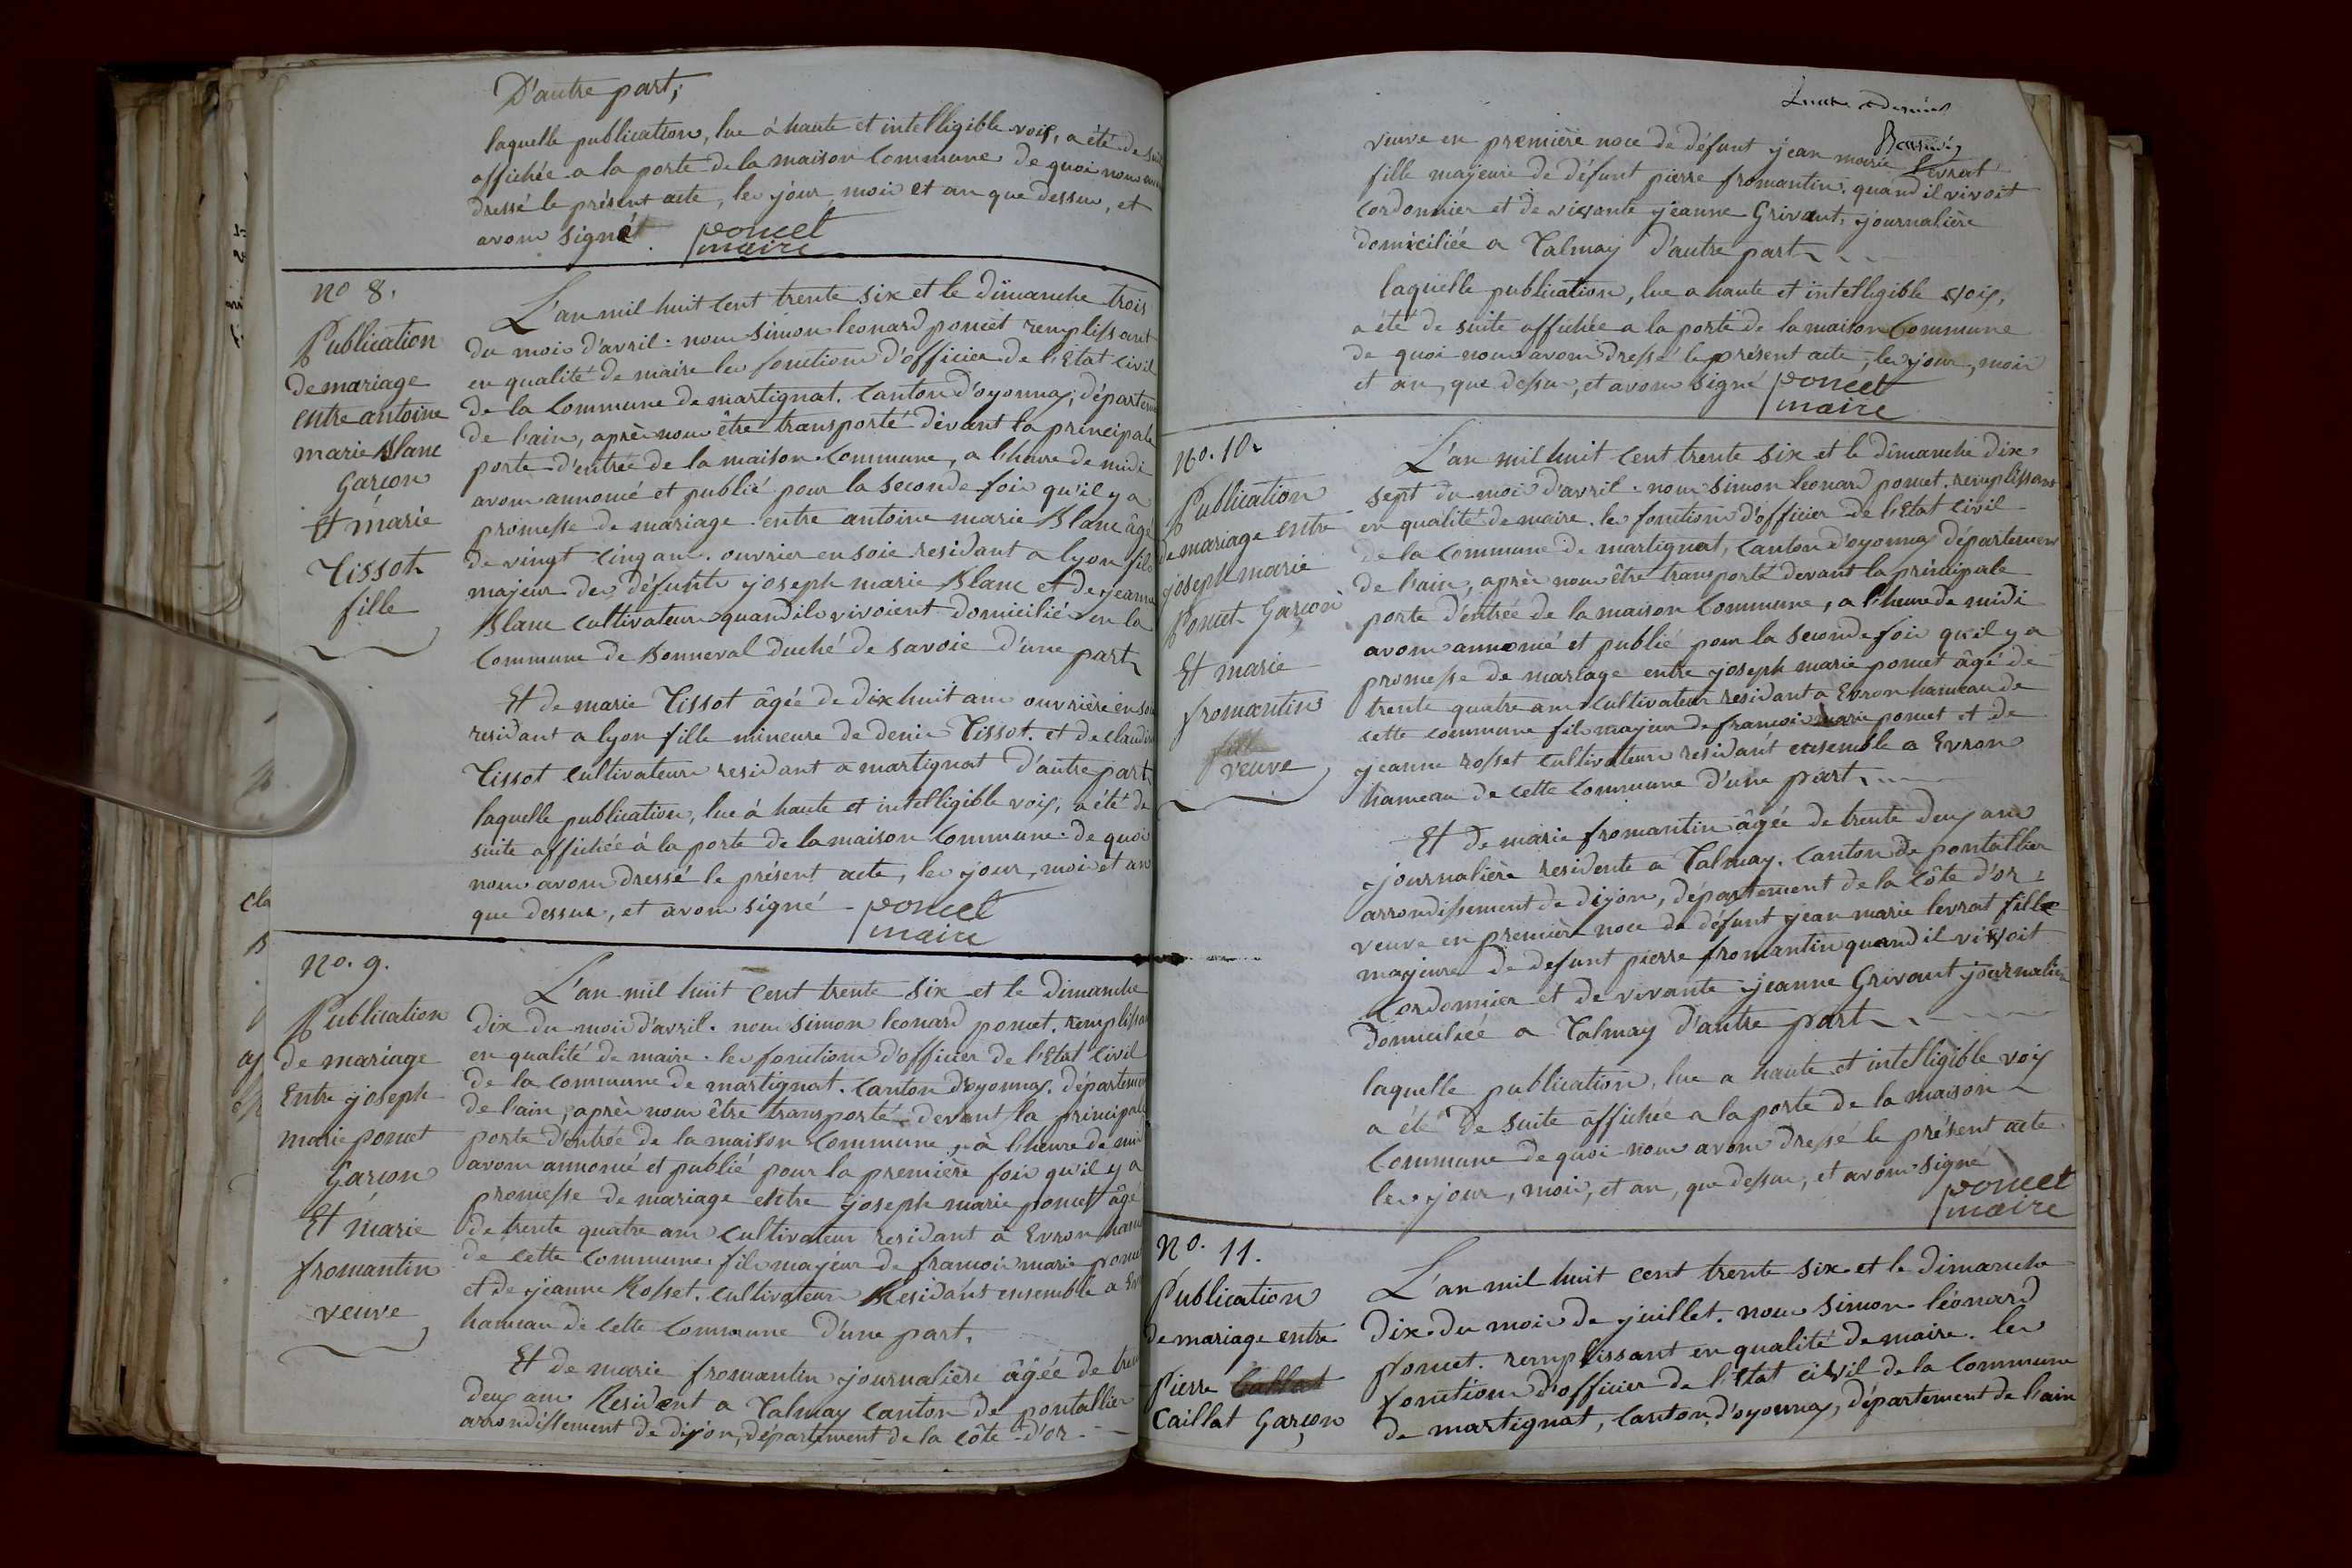 D'autre part;
laquelle publication, lue à haute et intelligible voix, a été de
affichée a la porte de la maison Commune de quoi nous avons
dressé le présent acte, les jour, mois et an que dessus, et
avons signé. poncet
maire
No 8.
Publication
de mariage
entre antoine
marie Blanc
Garcon
Et marie
Tissot
fille
L'an mil huit Cent trente six et le dimanche trois
du mois d'avril. nous simon leonard poncet remplissant
en qualité de maire les fonctions d'officier de l'Etat Civil
de la Commune de martignat. Canton d'oyonnax, départem
de l'ain, après nous être transporté devant la principale
porte d'entrée de la maison Commune, a l'heure de midi
avons annoncé et publié pour la seconde fois qu'il y a
promesse de mariage entre antoine marie Blanc âgé
de vingt Cinq ans. ouvrier en soie residant a lyon fils
majeur des défunts joseph marie Blanc et de jeanne
Blanc Cultivateurs quand ils vivoient domiciliés en la
Commune de Bonneval duché de savoie d'une part
Et de marie Tissot âgée de dix huit ans ouvrière en soie
residant a lyon fille mineure de denis Tissot. et de claudine
Tissot Cultivateurs residant a martignat D'autre part
laquelle publication, lue à haute et intelligible voix, a été de
suite affichée à la porte de la maison Commune. de quoi
nous avons dressé le présent acte, les jour, mois et an
que dessus, et avons signé poncet
maire
No. 9.
Publication
de mariage
Entre joseph
marie poncet
Garcon
Et marie
fromantin
veuve
L'an mil huit Cent trente six et le dimanche
dix du mois d'avril. nous simon leonard poncet. remplissa
en qualité de maire. les fonctions d'officier de l'Etat Civil
de la Commune de martignat. Canton d'oyonnax. départeme
de l'ain, après nous être transporté devant la principale
porte d'entrée de la maison Commune, à l'heure de mid
avons annoncé et publié pour la première fois qu'il y a
promesse de mariage entre joseph marie poncet âgé
de trente quatre ans Cultivateur residant a Evron hame
de cette Commune. fils majeur de francois marie ponc
et de jeanne Rosset. Cultivateurs Residant ensemble a Ev
hameau de cette Commune d'une part.
Et de marie fromantin journalière âgée de tren
deux ans Resident a Talmay Canton de pontallier
arrondissement de dijon, département de la côte d'or
veuve en première noce de défunt jean marie levrat
fille majeure de défunt pierre fromantin. quand il vivoit
Cordonnier et de vivante jeanne Grivaut, journalière
domiciliée a Talmay D'autre part
laquelle publication, lue a haute et intelligible voix,
a été de suite affichée a la porte de la maison Commune
de quoi nous avons dressé le présent acte, les jour, mois
et an, que dessus, et avons signé poncet
maire
No. 10.
Publication
de mariage entre
joseph marie
Poncet Garçon
Et marie
fromantin
fille
veuve
L'an mil huit Cent trente six et le dimanche dix
sept du mois d'avril. nous simon leonard poncet. remplissant
en qualité de maire. les fonctions d'officier de l'Etat Civil
de la Commune de martignat, Canton d'oyonnax département
de l'ain, après nous être transporté devant la principale
porte d'entrée de la maison Commune, a l'heure de midi
avons annoncé et publié pour la seconde fois qu'il y a
promesse de mariage entre joseph marie poncet âgé de
trente quatre ans Cultivateur residant a Evron hameau de
cette commune fils majeur de francois marie poncet et de
jeanne rosset Cultivateurs residant ensemble a Evron
hameau de cette Commune d'une part.
Et de marie fromantin âgée de trente deux ans
journalière residente a Talmay. Canton de pontallier
arrondissement de dijon, département de la côte d'or.
veuve en première noce de défunt jean marie levrat fille
majeure de defunt pierre fromantin quand il vivoit
Cordonnier et de vivante jeanne Grivaut journalière
domiciliée a Talmay D'autre part
laquelle publication, lue a haute et intelligible voix
a été de suite affichée a la porte de la maison
Commune de quoi nous avons dressé le présent acte
les jour, mois, et an, que dessus, et avons signé
poncet
maire
No. 11.
Publication
de mariage entre
Pierre
Caillat Garçon
L'an mil huit cent trente six et le dimanche
Dix du mois de juillet. nous simon léonard
Poncet. remplissant en qualité de maire. les
fonctions d'officier de l'Etat civil de la Commune
de martignat, Canton d'oyonnax, département de l'ain